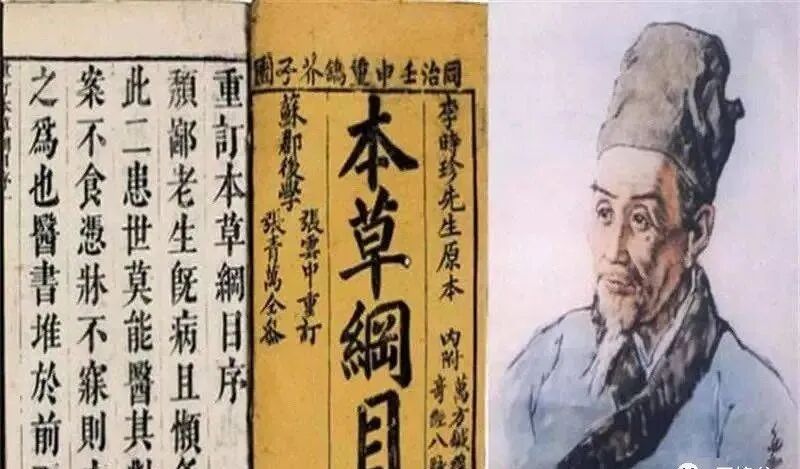 同治壬申重鐫芥子園
李時珍先生原本
內附
萬方鍼
奇經八
本草綱目
蘇郡後學
張雲中重訂
張青萬仝參
重訂本草綱目序
頹鄙老生旣病且懶
此二患世莫能醫其
案不食憑牀不寐則
之爲也醫書堆於前